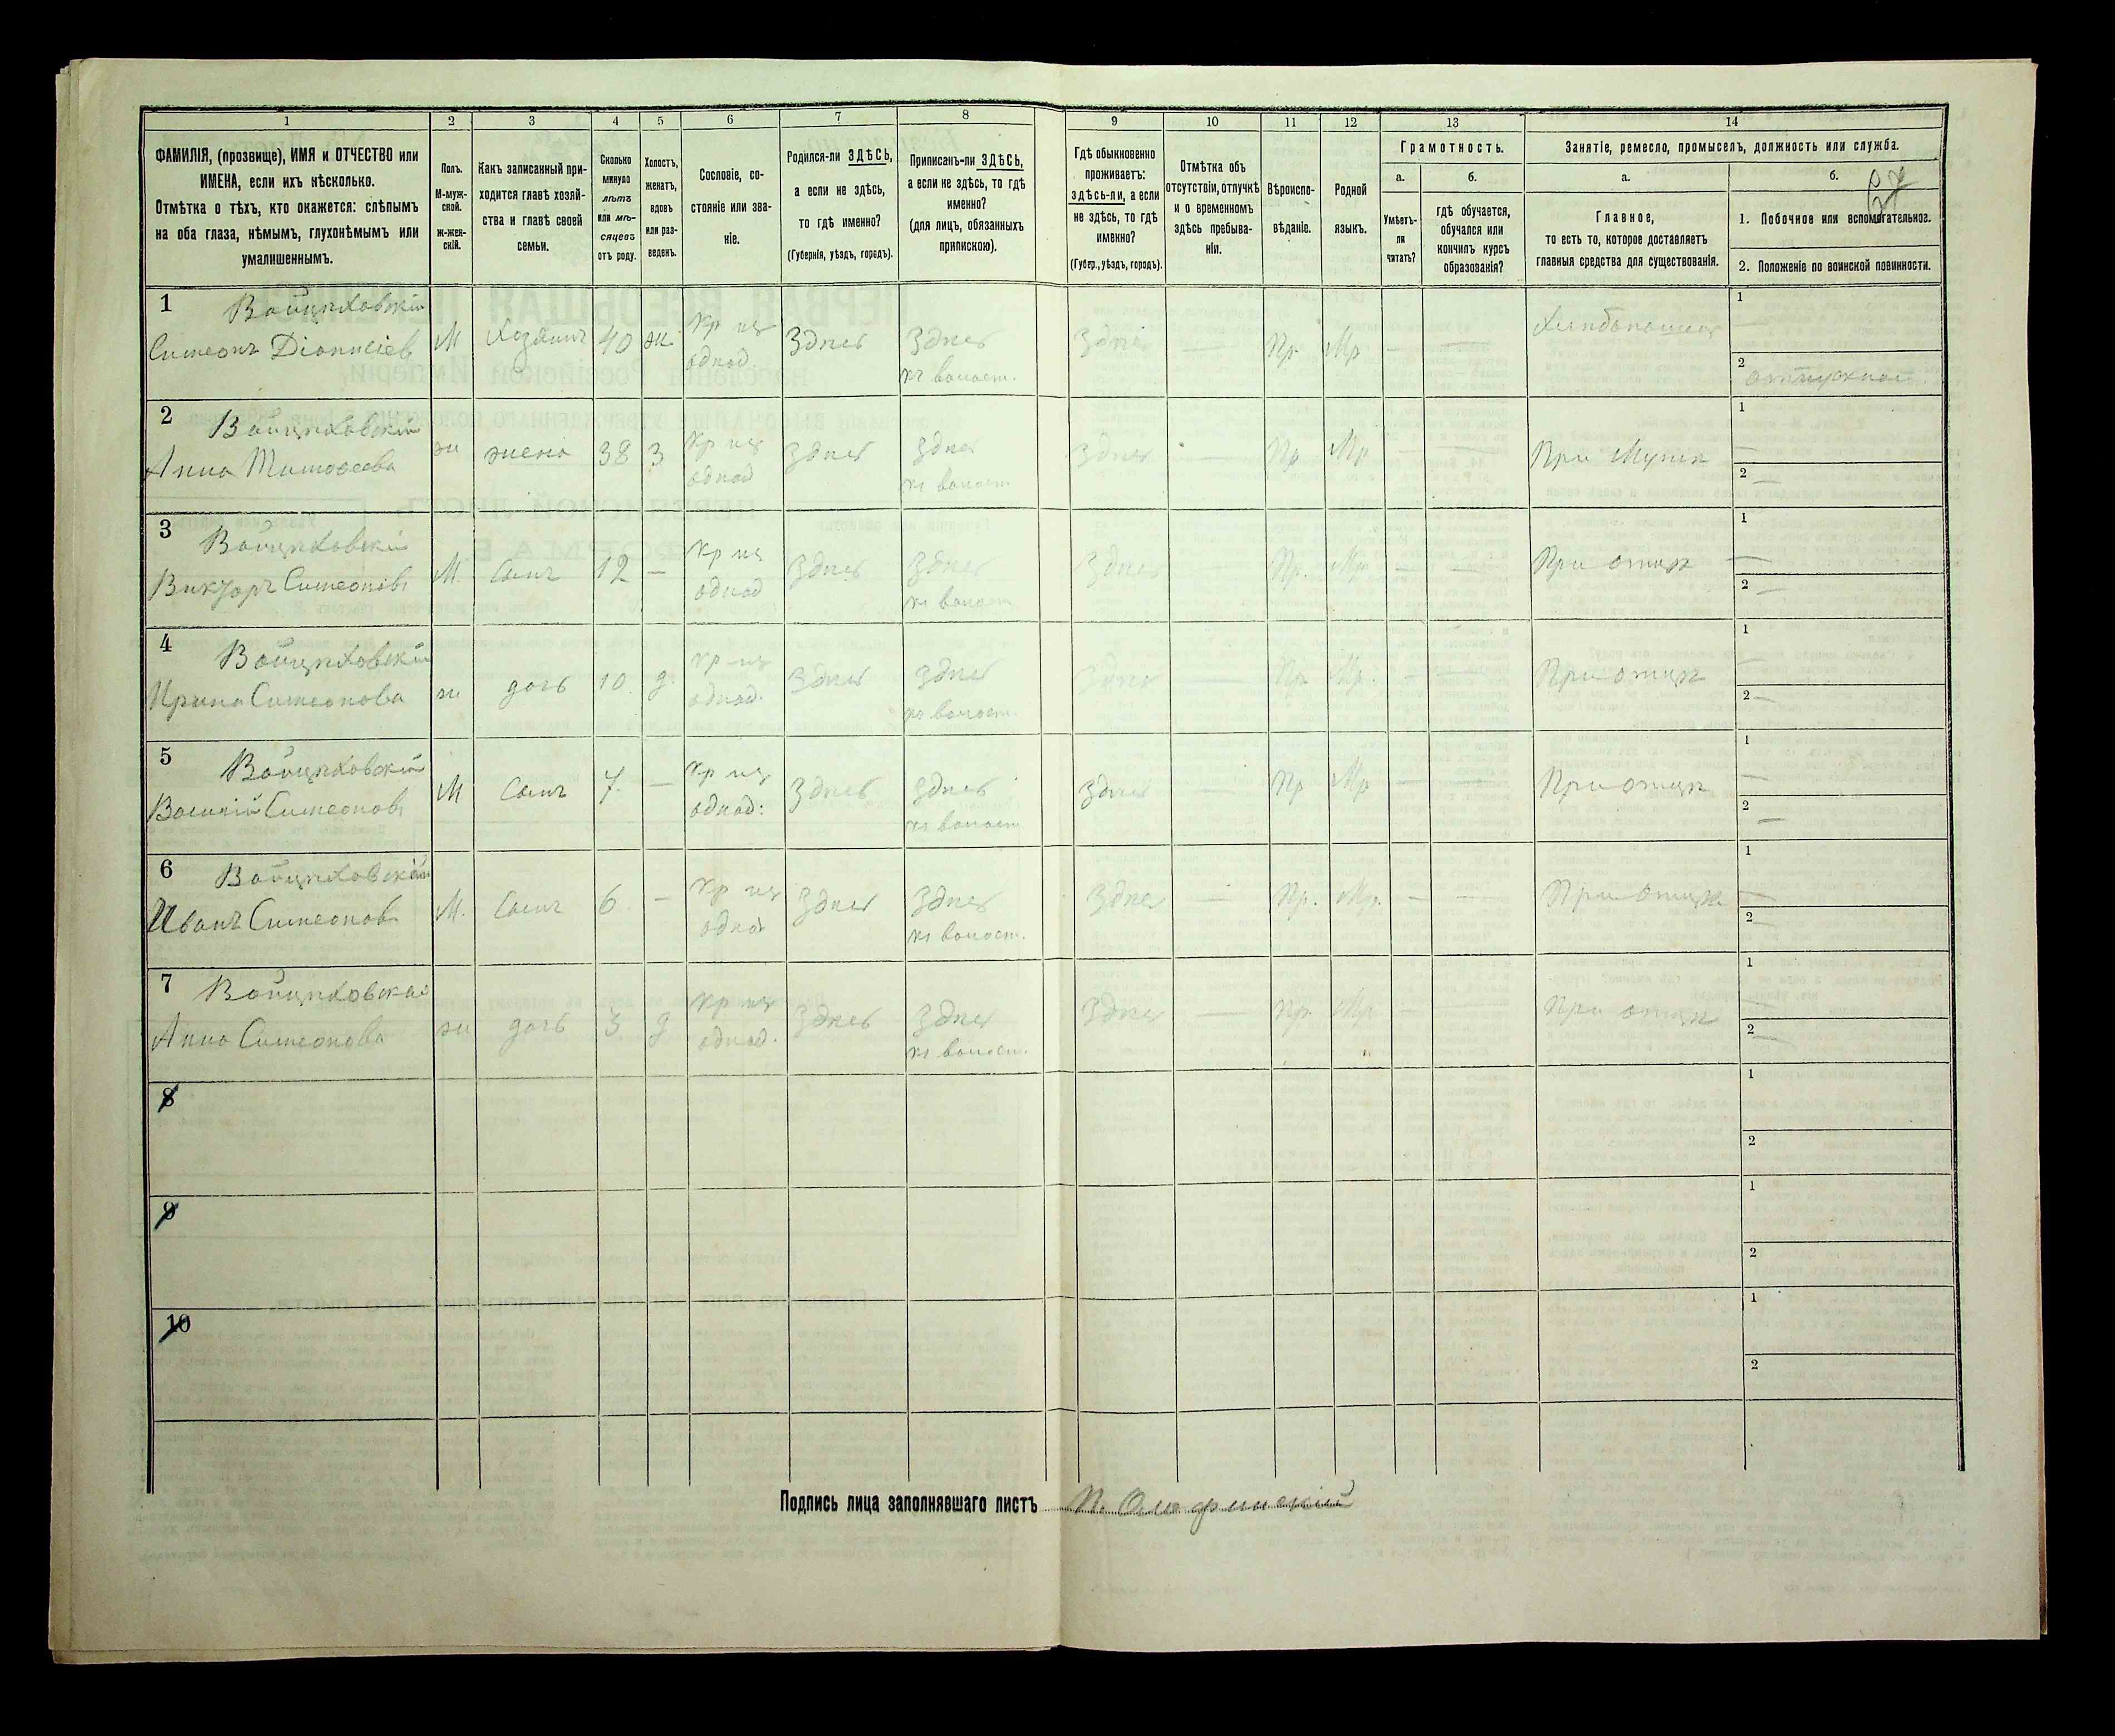 1 2 3 4 5 6 7 8 9 10 11 12 13 14
ФАМИЛІЯ, (прозвище), ИМЯ и ОТЧЕСТВО или
ИМЕНА, если ихъ нѣсколько.
Отмѣтка о тѣхъ, кто окажется: слѣпымъ
на оба глаза, нѣмымъ, глухонѣмымъ или
умалишеннымъ.
Полъ.
М-муж-
ской.
ж-жен-
скій.
Какъ записанный при-
ходится главѣ хозяй-
ства и главѣ своей
семьи.
Сколько
минуло
лѣтъ
или мѣ-
сяцевъ
отъ роду.
Холостъ,
женатъ,
вдовъ
или раз-
веденъ.
Сословіе, со-
стояніе или зва-
ніе.
Родился-ли ЗДѢСЬ,
а если не здѣсь,
то гдѣ именно?
(Губернія, уѣздъ, городъ).
Приписанъ-ли ЗДѢСЬ,
а если не здѣсь, то гдѣ
именно?
(для лицъ, обязанныхъ
припискою).
Гдѣ обыкновенно
проживаетъ:
здѣсь-ли, а если
не здѣсь, то гдѣ
именно?
(Губер., уѣздъ, городъ).
Отмѣтка объ
отсутствіи, отлучкѣ
и о временномъ
здѣсь пребыва-
ніи.
Вѣроиспо-
вѣданіе.
Родной
языкъ.
Грамотность.
а.
Умѣетъ-
ли
читать?
б.
гдѣ обучается,
обучался или
кончилъ курсъ
образованія?
Занятіе, ремесло, промыселъ, должность или служба.
а.
Главное,
то есть то, которое доставляетъ
главныя средства для существованія.
б.
1. Побочное или вспомогательное.
2. Положеніе по воинской повинности.
1
Симеонъ Діонисіев М Хозяинъ 40 ж. Кр изъ однод. Здѣсь Здѣсь къ волост. Здѣсь — Пр. Мр — — 1 —
2
2
Анна Тимофеева ж жена 38 З Кр изъ однод Здѣсь Здѣсь къ волост Здѣсь — Пр Мр — — При Мужѣ 1 —
2 —
3
Викторъ Симеоновъ М. Сынъ 12 — Кр изъ однод Здѣсь Здѣсь къ волост Здѣсь — Пр. Мр. — — При отцѣ 1 —
2 —
4
Ирина Симеонова ж дочь 10. д. Кр изъ однод. Здѣсь Здѣсь къ волост. Здѣсь — Пр Мр. — — При отцѣ 1 —
2 —
5
Василій Симеоновъ М Сынъ 7. — Кр изъ однод: Здѣсь Здѣсь къ волост Здѣсь — Пр Мр — — При отцѣ 1 —
2 —
6
Иванъ Симеонов М. Сынъ 6 — Кр изъ однод Здѣсь Здѣсь къ волост. Здѣсь — Пр. Мр. — — При отцѣ 1 —
2 —
7
Анна Симеонова ж дочь 3 д Кр изъ однод. Здѣсь Здѣсь къ волост. Здѣсь — Пр. Мр — — При отцѣ 1 —
2 —
8 1
2
9 1
2
10 1
2
Подпись лица заполнявшаго листъ